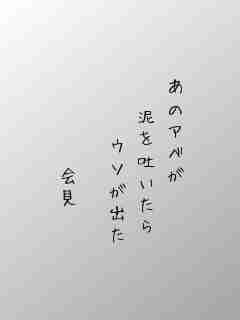 あのアベが
泥を吐いたら
ウソが出た
会見